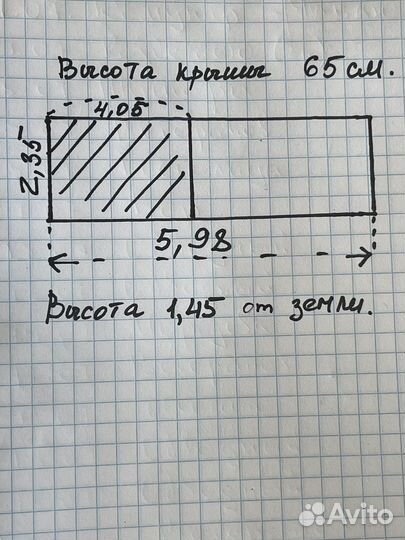 Высота крыши 65 см.
4,05
2,35
5,98
Высота 1,45 от земли.
Avito